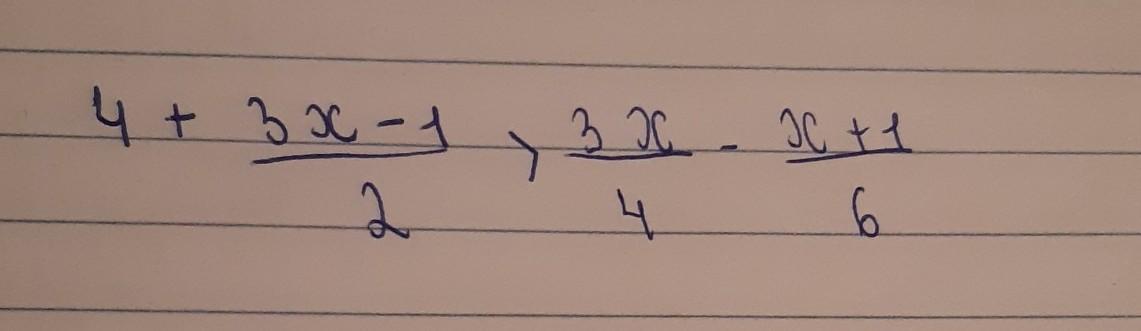 4 + \frac{3x-1}{2} > \frac{3x}{4} - \frac{x+1}{6}